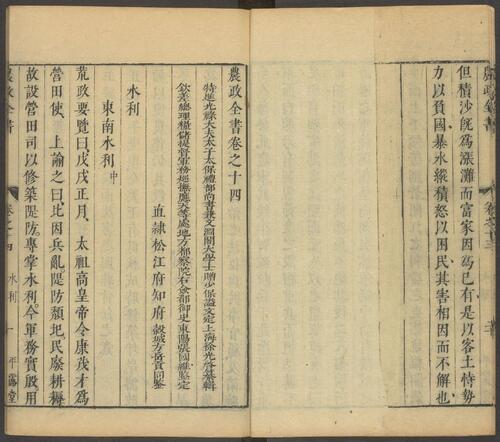 但積沙旣爲漲灘而富家因爲已有是以客土恃勢
力以貧國暴水縱積怒以困民其害相因而不解也
農政全書卷之十四
特進光祿大夫太子太保禮部尚書兼文淵閣大學士贈少保謚文定上海徐光啓纂輯
欽差總理糧儲提督軍務巡撫應天等處地方都察院右僉都御史東陽張國維鑒定
直隸松江府知府穀城方岳貢同鑒
水利
東南水利中
荒政要覽曰戊戌正月太祖高皇帝令康茂才爲
營田使上諭之曰比因兵亂隄防頹圮民廢耕耨
故設營田司以修築隄防專掌水利今軍務實殷用
農政全書
卷之十四
水利
一
平露堂